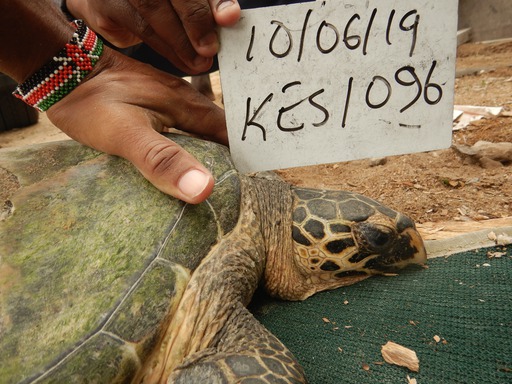 10/06/19
KES1096